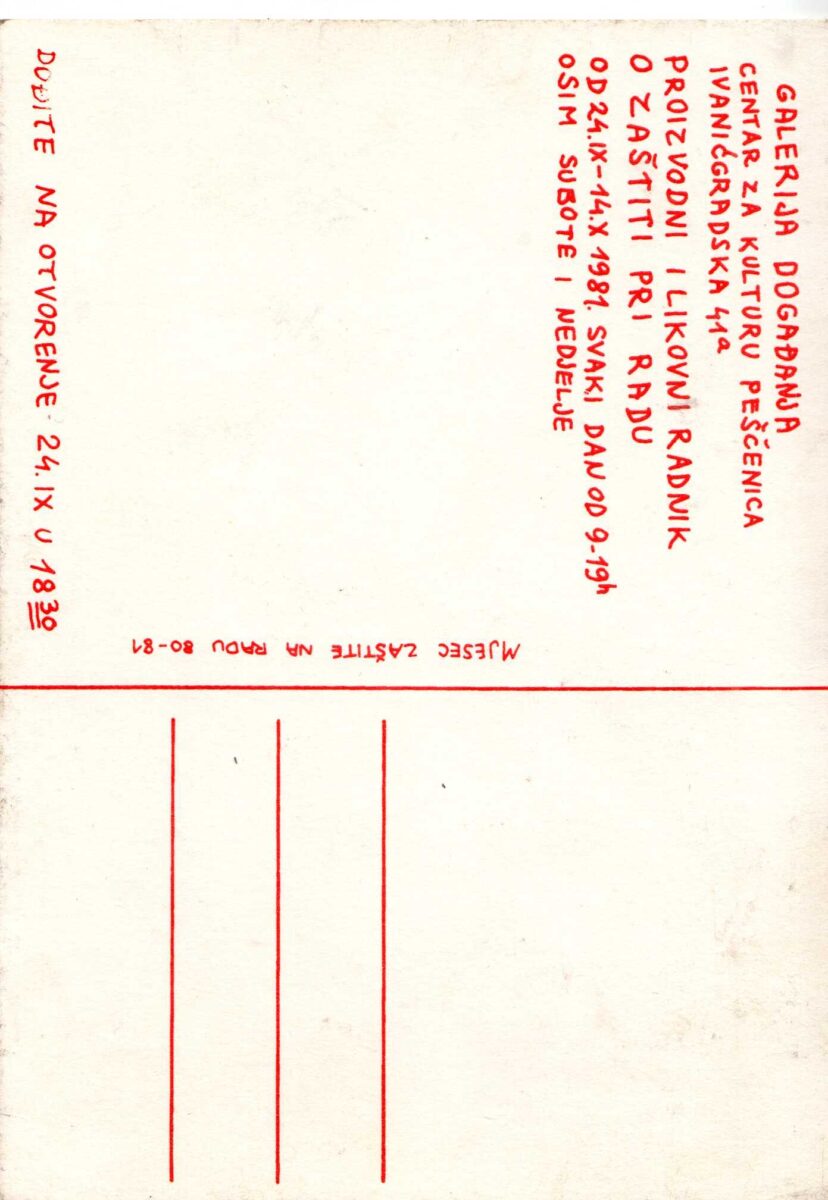 GALERIJA DOGAĐANJA
CENTAR ZA KULTURU PEŠČENICA
IVANIĆGRADSKA 41a
PROIZVODNI I LIKOVNI RADNIK
O ZAŠTITI PRI RADU
OD 24.IX-14.X 1981. SVAKI DAN OD 9-19h
OSIM SUBOTE I NEDJELJE
DOĐITE NA OTVORENJE 24.IX U 18 30
MJESEC ZAŠTITE NA RADU 80-81